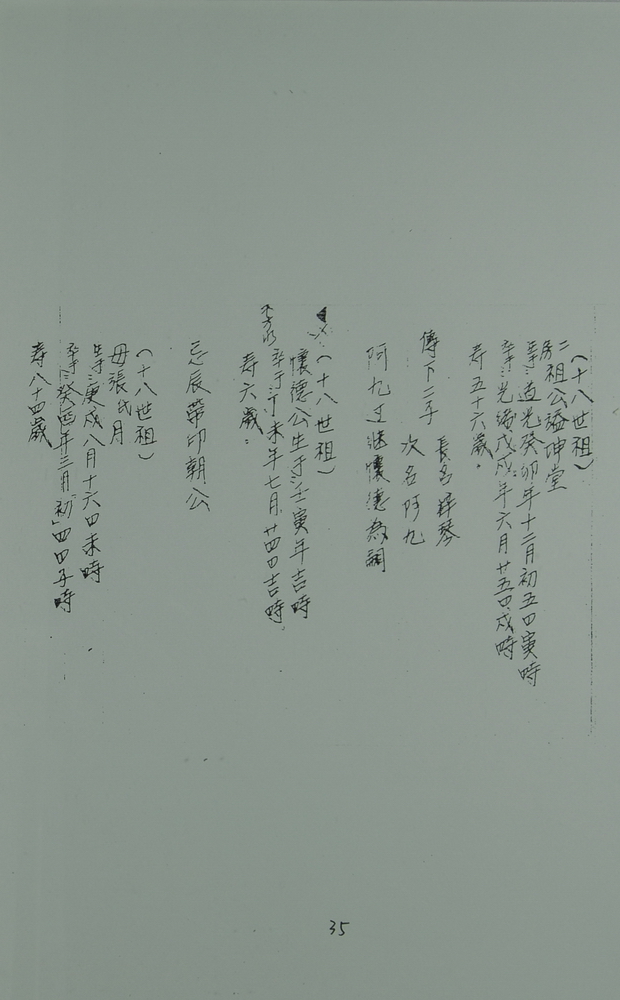 (十八世祖)
二房祖公溢坤堂
生于道光癸卯年十二月初五日寅時
卒于光緒戊戌年六月廿五日戌時
寿五十六歲
傳下二子 長名 琴
次名阿九
阿九 继懷德為嗣
(十八世祖)
懷德公生于壬寅年吉時
卒于丁未年七月廿四日吉時
寿六歲
忌辰帶印朝公
(十八世祖)
母張氏月
生于庚戌八月十六日未時
卒于癸酉年三月初四日子時
寿八十四歲
35